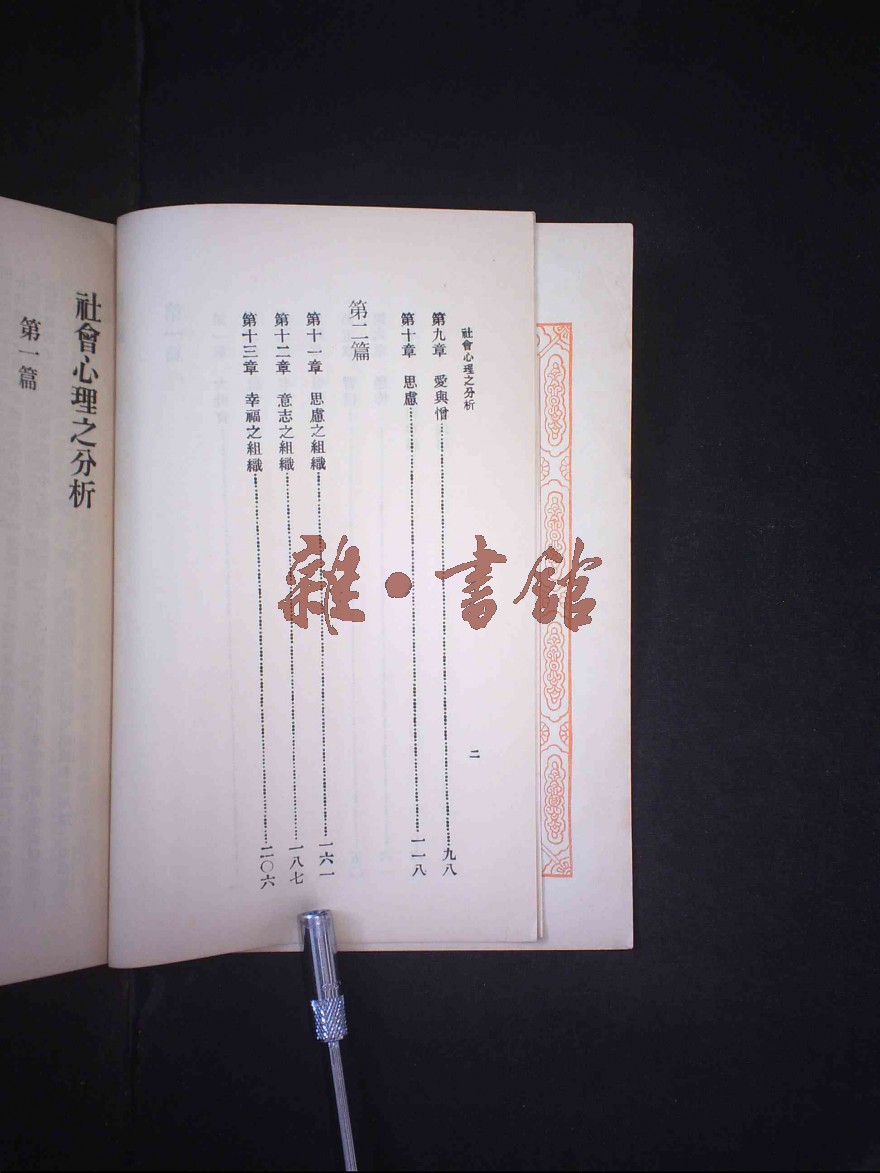 社會心理之分析
二
第九章　愛與憎……九八
第十章　思慮……一一八
第二篇
第十一章　思慮之組織……一六一
第十二章　意志之組織……一八七
第十三章　幸福之組織……二〇六
社會心理之分析
第一篇
雜・書館